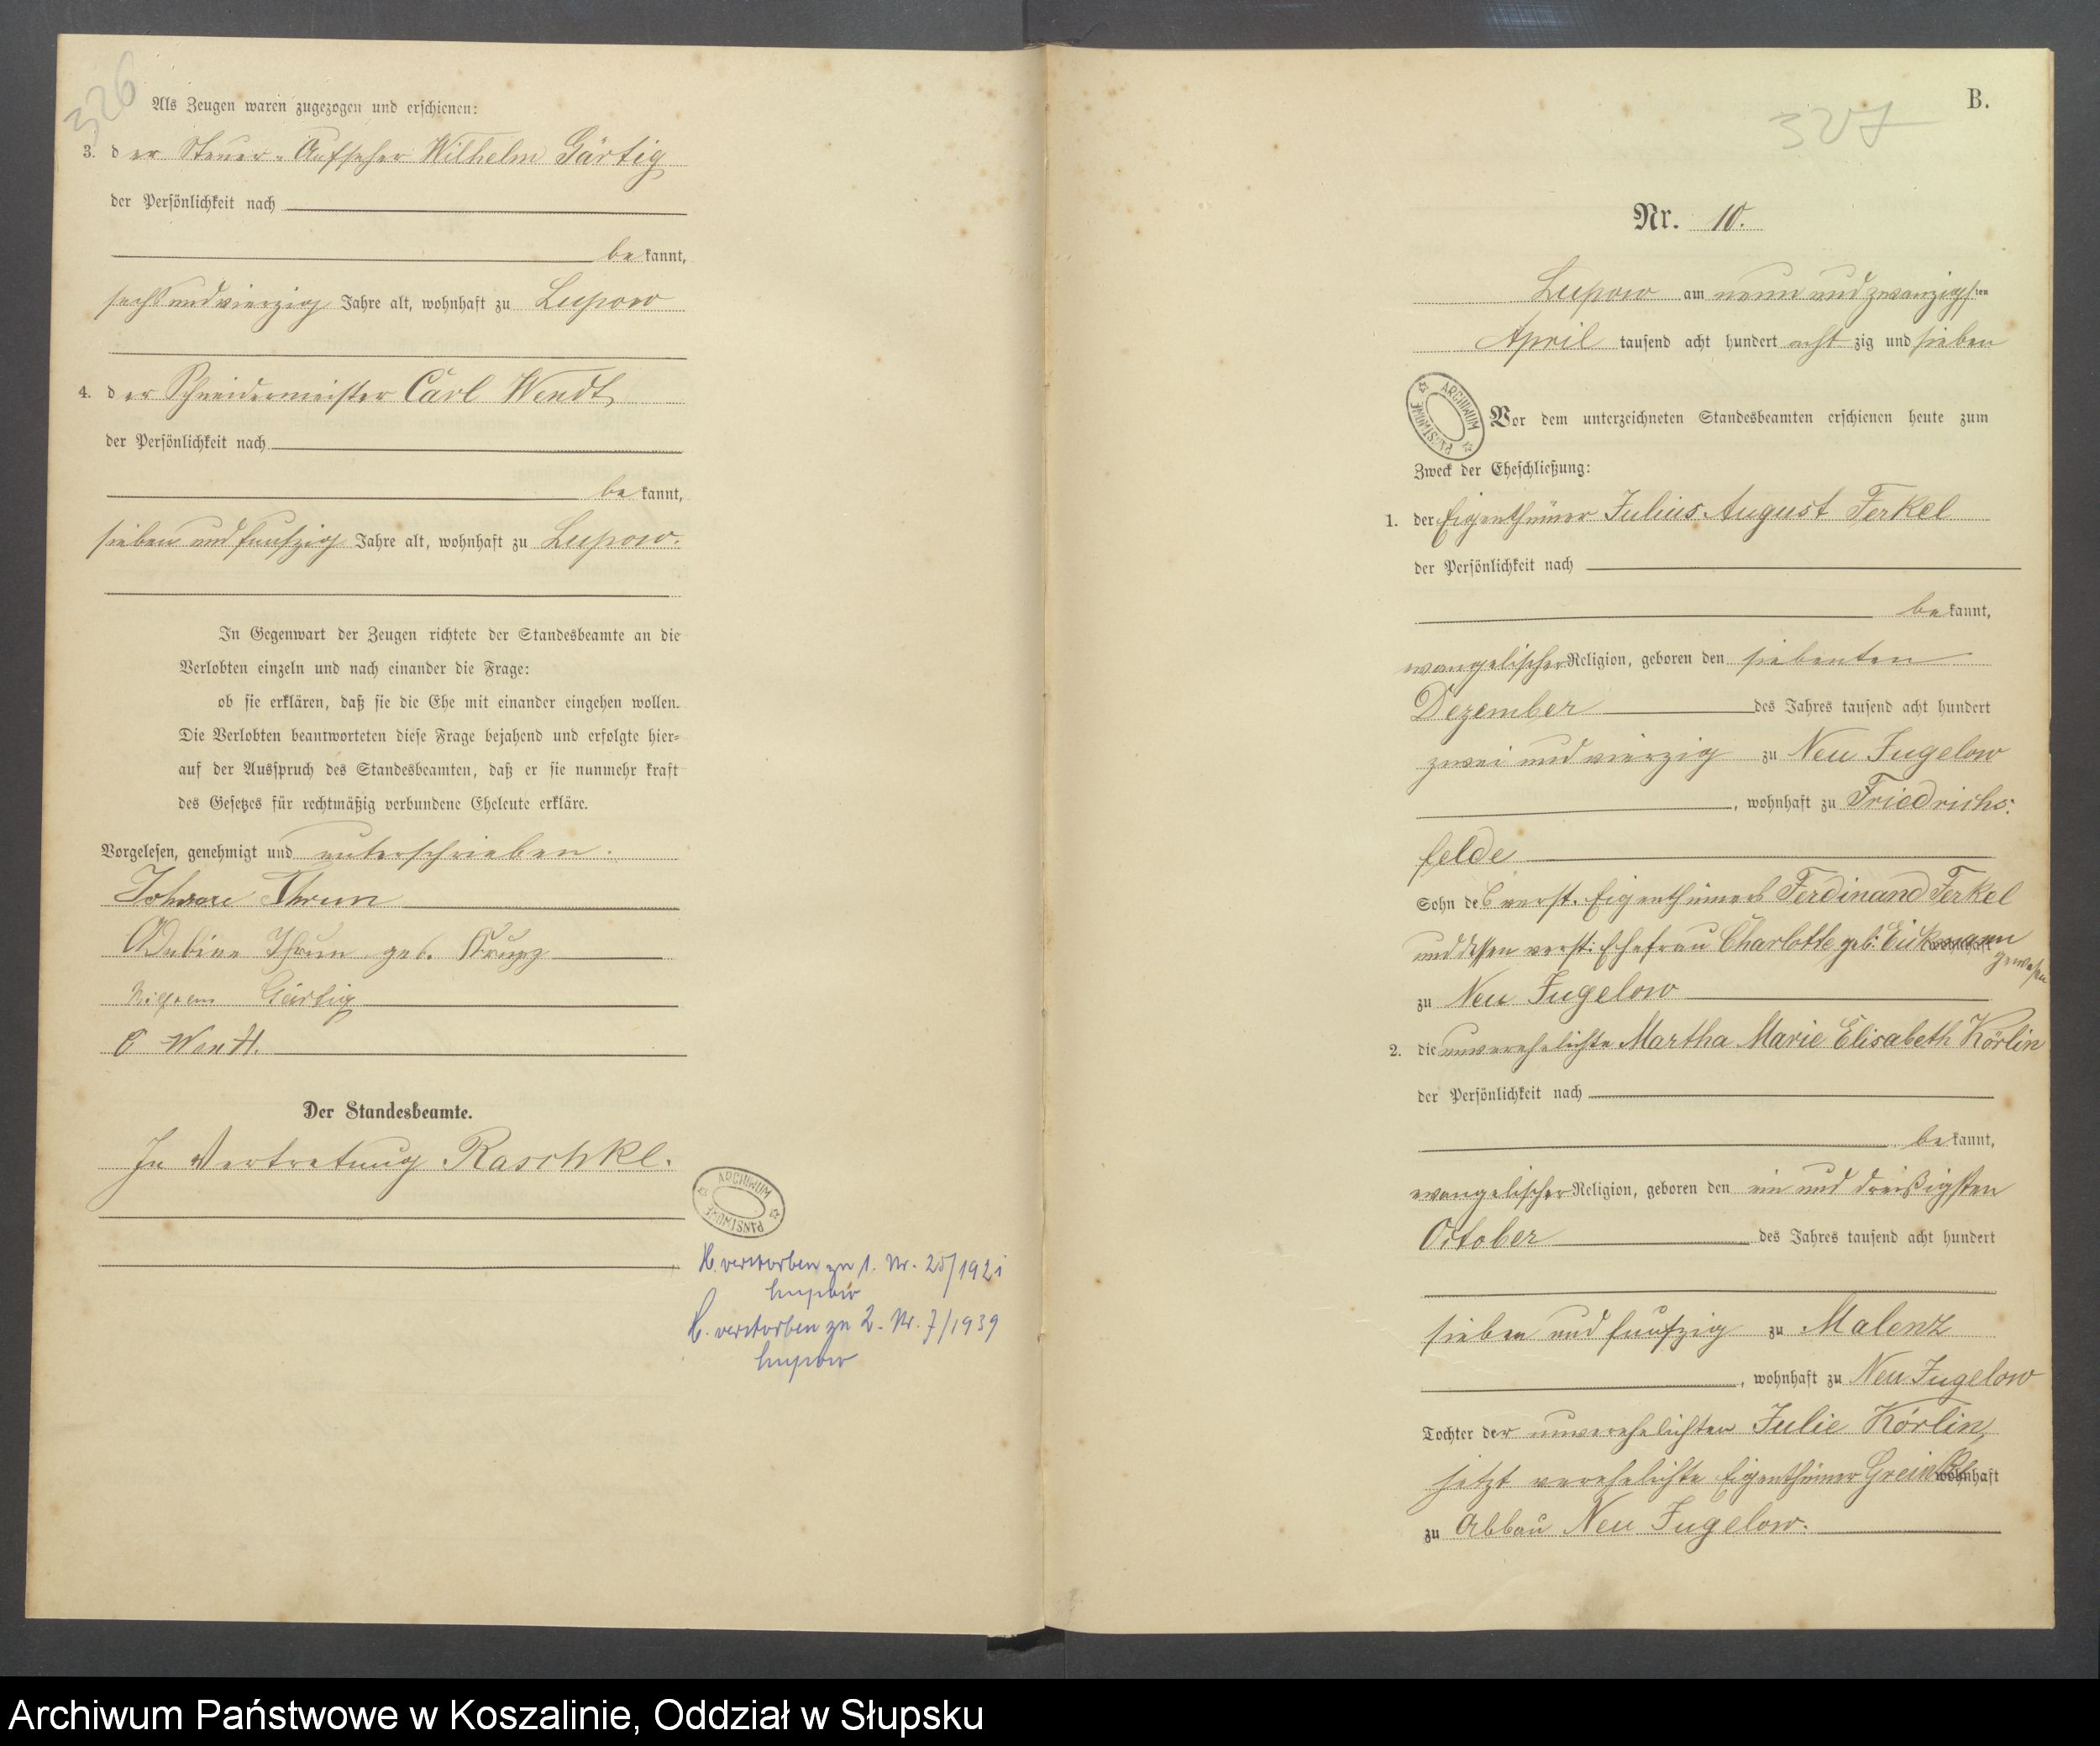 326
Als Zeugen waren zugezogen und erschienen:
3. der Steuer-Aufseher Wilhelm Gärtig
der Persönlichkeit nach
bekannt,
sechs und vierzig Jahre alt, wohnhaft zu Lupow
4. der Schneidermeister Carl Wendt
der Persönlichkeit nach
bekannt,
sieben und funfzig Jahre alt, wohnhaft zu Lupow.
In Gegenwart der Zeugen richtete der Standesbeamte an die
Verlobten einzeln und nach einander die Frage:
ob sie erklären, daß sie die Ehe mit einander eingehen wollen.
Die Verlobten beantworteten diese Frage bejahend und erfolgte hier-
auf der Ausspruch des Standesbeamten, daß er sie nunmehr kraft
des Gesetzes für rechtmäßig verbundene Eheleute erkläre.
Vorgelesen, genehmigt und unterschrieben.
Thrun
Thrun geb.
Wilhelm Gärtig
C Wendt.
Der Standesbeamte.
In Vertretung Raschke.
ARCHIWUM PAŃSTWOWE
H. verstorben zu 1. Nr. 25/1921
Lupow
H. verstorben zu 2. Nr. 7/1939
Lupow
B.
327
Nr. 10.
Lupow am neun und zwanzigsten
April tausend acht hundert achtzig und sieben
ARCHIWUM PAŃSTWOWE
Vor dem unterzeichneten Standesbeamten erschienen heute zum
Zweck der Eheschließung:
1. der Eigenthümer Julius August Ferkel
der Persönlichkeit nach
bekannt,
evangelischer Religion, geboren den siebenten
Dezember des Jahres tausend acht hundert
zwei und vierzig zu Neu Jugelow
, wohnhaft zu Friedrichs-
felde
Sohn des verst. Eigenthümers Ferdinand Ferkel
und dessen verst: Ehefrau Charlotte geb: Eickmann wohnhaft
gewesen
zu Neu Jugelow
2. die unverehelichte Martha Marie Elisabeth Körlin
der Persönlichkeit nach
bekannt,
evangelischer Religion, geboren den ein und dreißigsten
October des Jahres tausend acht hundert
sieben und funfzig zu Malenz
, wohnhaft zu Neu Jugelow
Tochter der unverehelichten Julie Körlin,
jetzt verehelichte Eigenthümer Greinke wohnhaft
zu Abbau Neu Jugelow.
Archiwum Państwowe w Koszalinie, Oddział w Słupsku